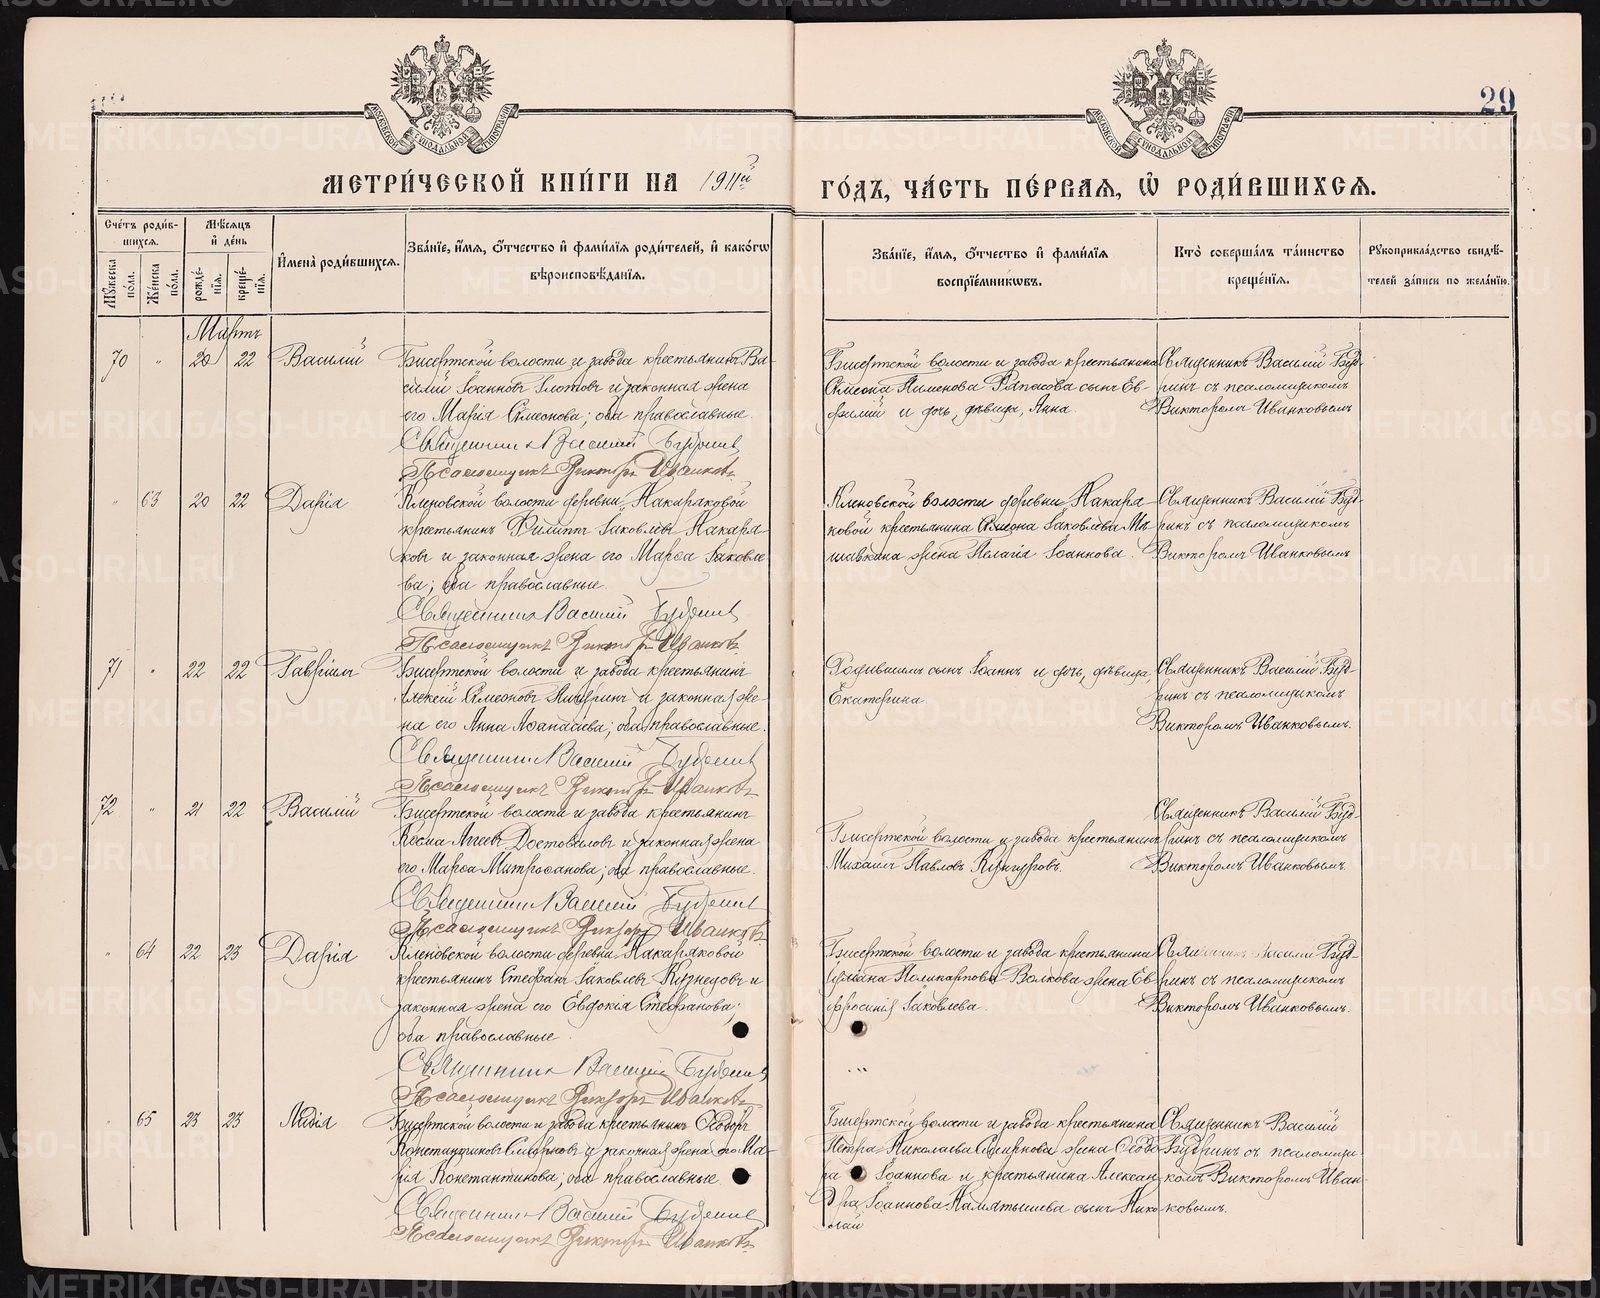 29
МОСКОВСКОЙ СѴНОДАЛЬНОЙ ТИПОГРАФІИ
МОСКОВСКОЙ СѴНОДАЛЬНОЙ ТИПОГРАФІИ
МЕТРИ́ЧЕСКОЙ КНИ́ГИ НА 1911й ГО́ДЪ, ЧА́СТЬ ПЕ́РВАЯ, Ѡ҆ РОДИ́ВШИХСЯ.
Сче́тъ роди́в-
шихся.
Мꙋ́жеска по́ла.
Же́нска по́ла.
Мѣ́сяцъ
и҆ де́нь
рожде́-
нїя.
креще́-
нїя.
И҆мена̀ роди́вшихся.
Зва́нїе, и҆́мя, ѻ҆́тчество и҆ фами́лїя роди́телей, и҆ како́гѡ
вѣроисповѣ́данїя.
Зва́нїе, и҆́мя, ѻ҆́тчество и҆ фами́лїя
воспрїе́мникѡвъ.
Кто̀ соверша́лъ та́инство
креще́нїя.
Рꙋкоприкла́дство свидѣ́-
телей за́писи по жела́нїю.
Мартъ
70 " 20 22 Василій
Бисертской волости и завода крестьянинъ Ва-
силій Іоанновъ и законная жена
его Марія Симеонова; оба православные.
Священникъ Василій Будринъ
Псаломщикъ Викторъ Иванковъ
Бисертской волости и завода крестьянина
Симеона Пименова сынъ Ев-
фимій и дочь, дѣвица, Анна.
Священникъ Василій Буд-
ринъ съ псаломщикомъ
Викторомъ Иванковымъ
" 63 20 22 Дарія
Кленовской волости деревни Накаряковой
крестьянинъ Филиппъ Іаковлевъ Накаря-
ковъ и законная жена его Марѳа Іаковле-
ва; оба православные.
Священникъ Василій Будринъ
Псаломщикъ Викторъ Иванковъ
Кленовской волости деревни Накаря-
ковой крестьянина Симеона Іаковлева
жена Пелагія Іоаннова.
Священникъ Василій Буд-
ринъ съ псаломщикомъ
Викторомъ Иванковымъ
71 " 22 22 Гавріилъ
Бисертской волости и завода крестьянинъ
Алексій Симеоновъ и законная же-
на его Анна Аѳанасіева; оба православные.
Священникъ Василій Будринъ
Псаломщикъ Викторъ Иванковъ
Родившимъ сынъ Іоаннъ и дочь, дѣвица,
Екатерина
Священникъ Василій Буд-
ринъ съ псаломщикомъ
Викторомъ Иванковымъ.
72 " 21 22 Василій
Бисертской волости и завода крестьянинъ
Косма Аггеевъ Достоваловъ и законная жена
его Марѳа Митрофанова; оба православные.
Священникъ Василій Будринъ
Псаломщикъ Викторъ Иванковъ
Бисертской волости и завода крестьянинъ
Михаилъ Павловъ Кунгуровъ.
Священникъ Василій Буд-
ринъ съ псаломщикомъ
Викторомъ Иванковымъ.
" 64 22 23 Дарія
Кленовской волости деревни Накаряковой
крестьянинъ Стефанъ Іаковлевъ Кузнецовъ и
законная жена его Евдокія Стефанова;
оба православные
Священникъ Василій Будринъ
Псаломщикъ Викторъ Иванковъ
Бисертской волости и завода крестьянина
Поликарпова Волкова жена Ев-
фросинія Іаковлева.
Священникъ Василій Буд-
ринъ съ псаломщикомъ
Викторомъ Иванковымъ.
" 65 23 23 Лидія
Бисертской волости и завода крестьянинъ Ѳеодоръ
Константиновъ Смирновъ и законная жена его Ма-
рія Константинова; оба православные
Священникъ Василій Будринъ
Псаломщикъ Викторъ Иванковъ
Бисертской волости и завода крестьянина
Петра Николаева Смирнова жена Ѳеодо-
ра Іоаннова и крестьянина Алексан-
дра Іоаннова сынъ Нико-
лай
Священникъ Василій
Будринъ съ псаломщи-
комъ Викторомъ Иван-
ковымъ.
METRIKI.GASO-URAL.RU